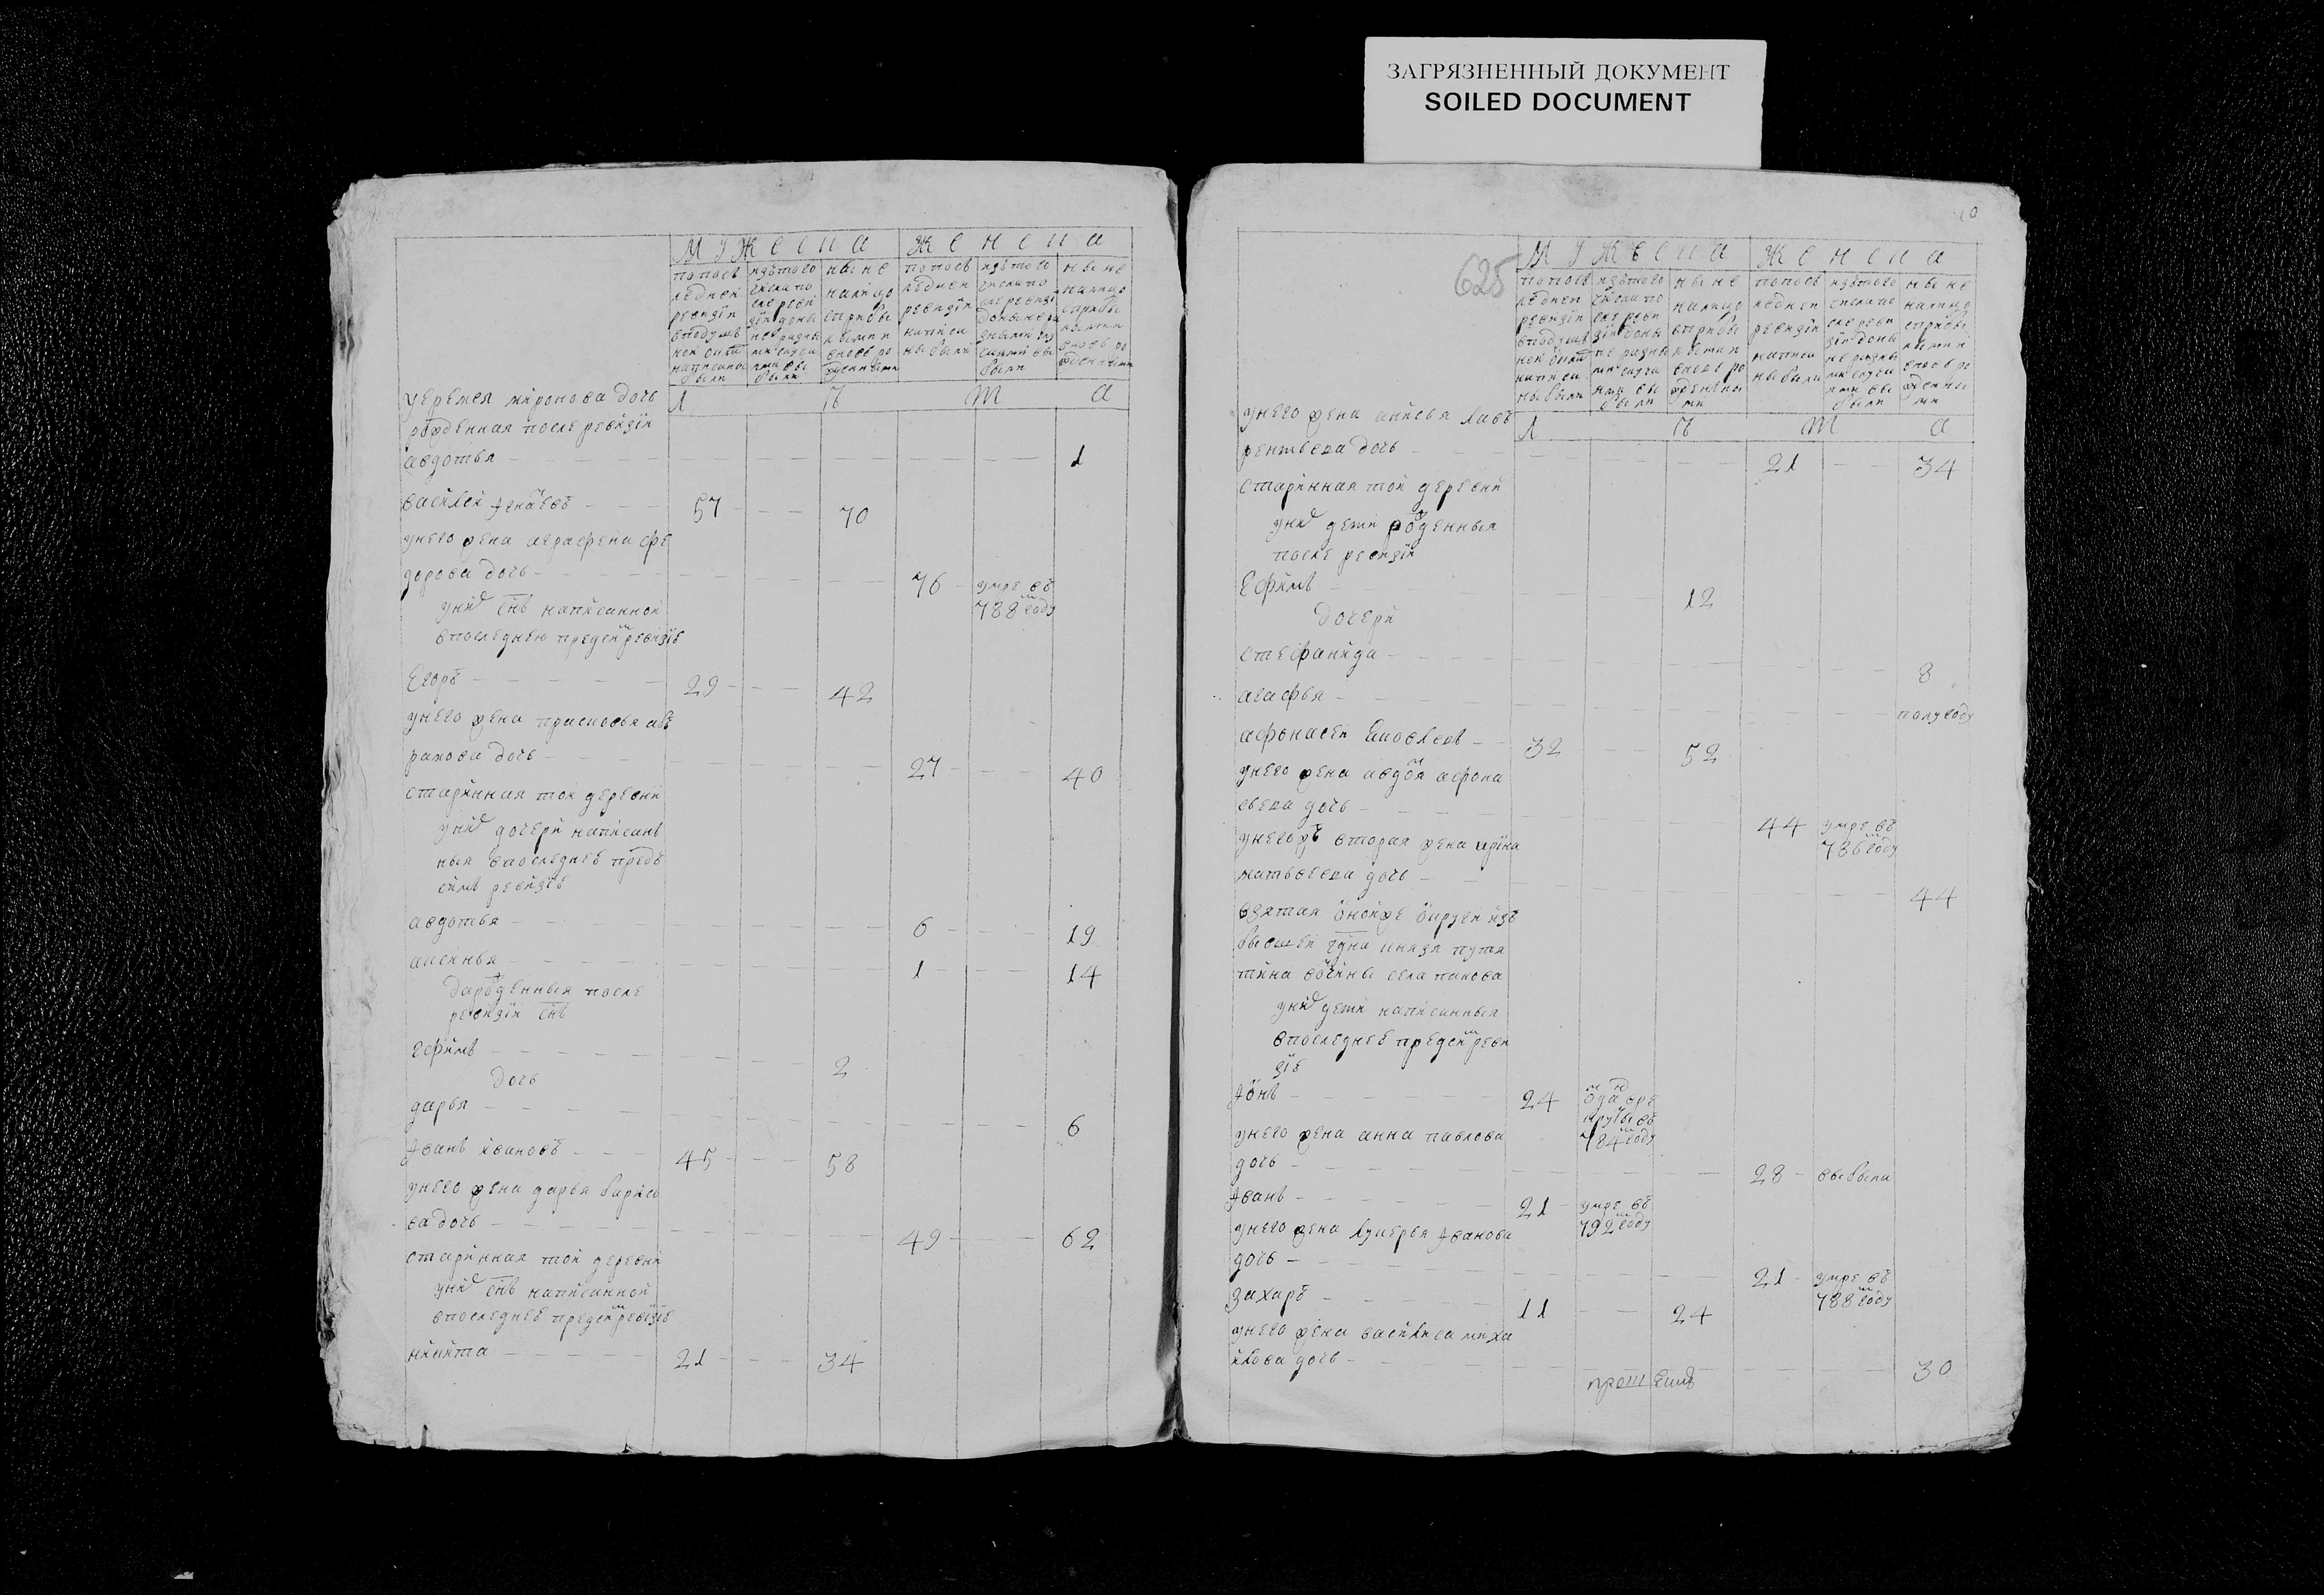 ЗАГРЯЗНЕННЫЙ ДОКУМЕНТ
SOILED DOCUMENT
мужеска женска
попоследней ревизiи вподушной окладъ написаны были
изътого числа после ревизiи
ныне налицо сприбылыми вновь рожденными
попоследней ревизiи написаны были
изътого числа после ревизiи
ныне налицо сприбылыми вновь рожденными
л ѣ т а
уеремея миронова дочь
рожденная после ревизiи
авдотья 1
василей игнатевъ 57 70
унего жена аграфена фе
дорова дочь 76 умре въ
788 году
унихъ снъ написанной
впоследнею предсимъ ревизiе
Егоръ 29 42
унего жена прасковья аб
рамова дочь 27 40
старинная той деревни
унихъ дочери написан
ныя впоследнеѣ предъ
симъ ревизiе
авдотья 6 19
аксинья 1 14
рожденныя после
ревизiи снъ
ефимъ 2
дочь
дарья 6
Иванъ ивановъ 45 58
унего жена дарья бориcо
ва дочь 49 62
старинная той деревни
унихъ снъ написанной
впоследнеѣ предсимъ ревизiе
никита 21 34
625
мужеска женска
попоследней ревизiи вподушной окладъ написаны были
изътого числа после ревизiи
ныне налицо сприбылыми вновь рожденными
попоследней ревизiи написаны были
изътого числа после ревизiи
ныне налицо сприбылыми вновь рожденными
л ѣ т а
унего жена анисья лавъ
рентьева дочь 21 34
старинная той деревни
унихъ дети рожденныя
после ревизiи
Ефимъ 12
дочери
стефанида 8
агафья полугоду
афонасей яковлевъ 32 52
унего жена авдотя афона
сьева дочь 44 умре въ
786 году
унегожъ вторая жена ирiна
матьвеева дочь 44
взятая оной же округи изъ
бывшей гдна князя путя
тина вотчины села панова
унихъ дети написанныя
впоследнеѣ предсимъ реви
зiе
Ионъ 24 отданъ врекруты въ
784 году
унего жена анна павлова
дочь 28 выбыла
Иванъ 21 умре въ
792 году
унего жена лукерья Иванова
дочь 21 умре въ
788 году
Захаръ 11 24
унего жена василиса миха
илова дочь 30